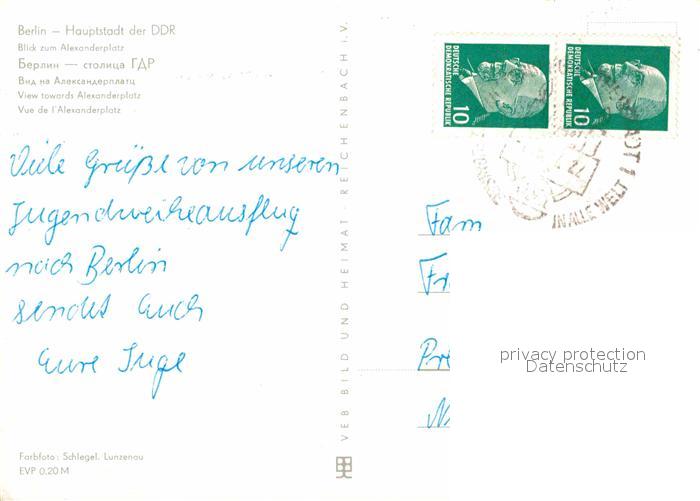 Berlin – Hauptstadt der DDR
Blick zum Alexanderplatz
Берлин — столица ГДР
Вид на Александерплатц
View towards Alexanderplatz
Vue de l'Alexanderplatz
Viele Grüße von unseren
Jugendweiheausflug
nach Berlin
sendet Euch
Eure Inge
Farbfoto: Schlegel, Lunzenau
EVP 0,20 M
VEB BILD UND HEIMAT REICHENBACH i.V.
DEUTSCHE
DEMOKRATISCHE REPUBLIK
10
DEUTSCHE
DEMOKRATISCHE REPUBLIK
10
IN ALLE WELT
Fam
Fr
Pr
privacy protection
Datenschutz